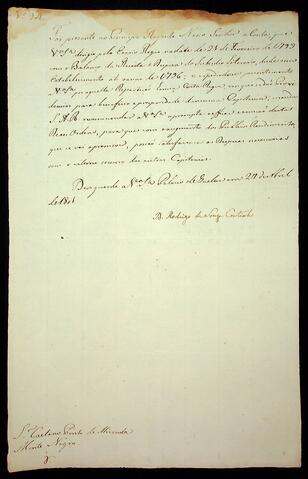 Foi presente ao Principe Regente Nosso Senhor a Carta, que
V.ª S.ª dirigio pelo Erario Regio na data de 21 de Fevereiro de 1799
com o Balanço da Receita e Despeza do Subsidio Literario, desde seu
Estabelecimento até o anno de 1796; e expedindose
V.ª S.ª por aquella Repartição huma Carta Regia, em que se dão Provi-
dencias para beneficio e prosperidade dessa mesma Capitania, manda
S. A. R. recommendar a V.ª S.ª a prompta e efficaz execução destas
Reaes Ordens, para que com augmento dos Rendimentos,
que se vai promover, possão satisfazerse as Despezas necessarias
sem o soccorro das outras Capitanias.
Deos guarde a V.ª S.ª Palacio de Queluz em 27 de Abril
de 1801
D. Rodrigo de Souza Coutinho
S.r Caetano Pinto de Miranda
Monte Negro